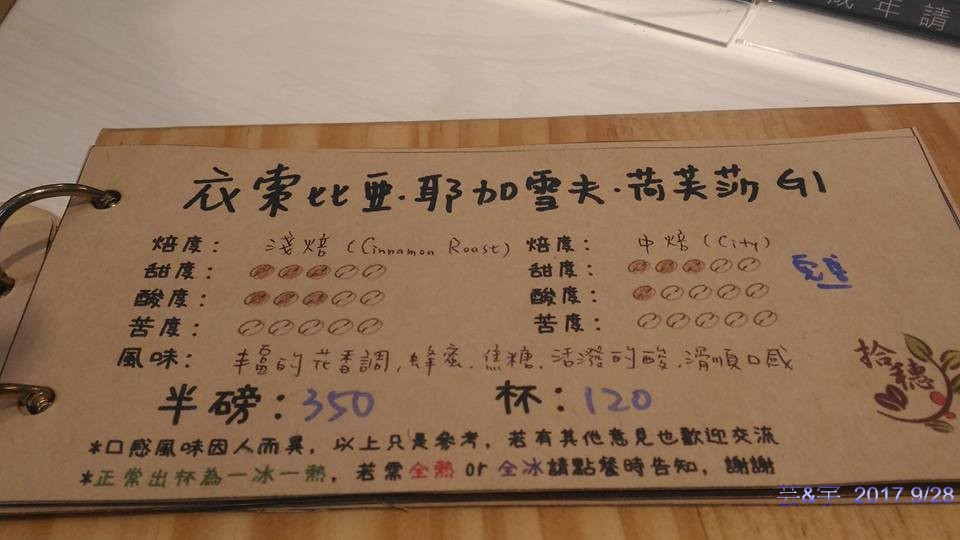 成年請
衣索比亞.耶加雪夫.荷芙莎 G1
焙度: 淺焙 (Cinnamon Roast) 焙度: 中焙 (City)
甜度: 甜度:
酸度: 酸度:
苦度: 苦度:
風味: 丰富的花香調,蜂蜜.焦糖.活潑的酸.滑順口感
半磅:350 杯:120
*口感風味因人而異,以上只是參考,若有其他意見也歡迎交流
*正常出杯為一冰一熱,若需全熱 or 全冰請點餐時告知,謝謝
拾穗
芸&宇 2017 9/28